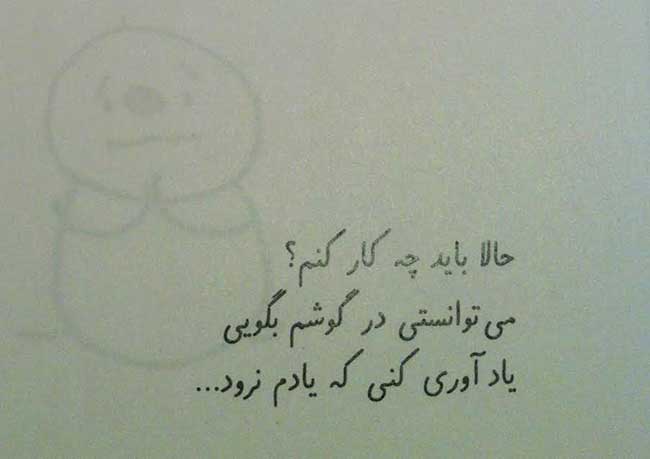 حالا باید چه کار کنم؟
می‌توانستی در گوشم بگویی
یادآوری کنی که یادم نرود...